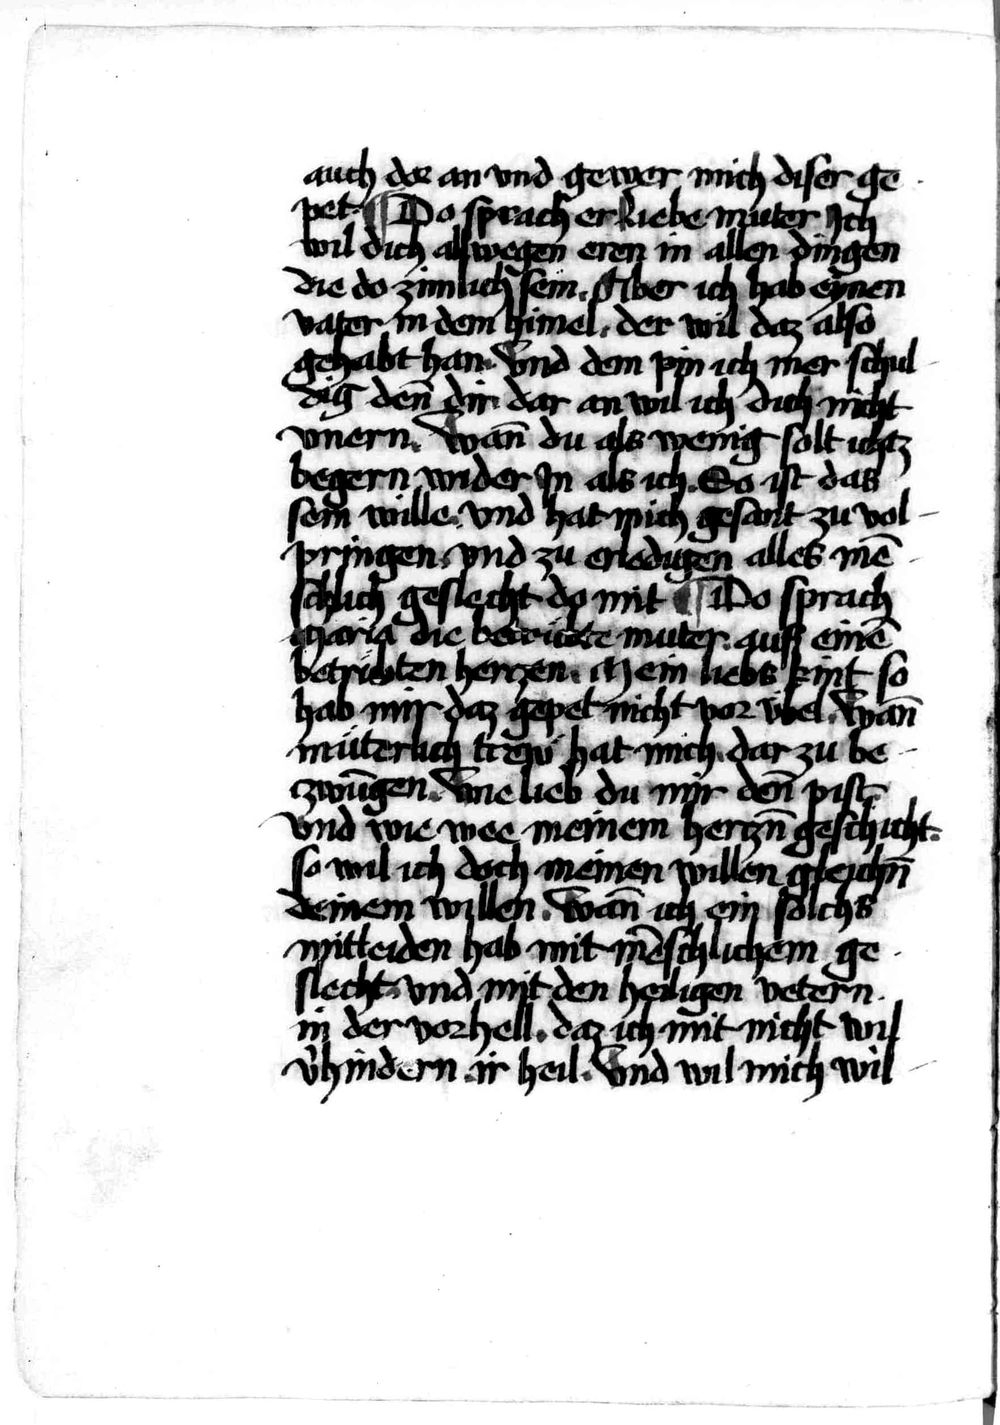 auch dor an vnd gewer mich diser ge
pet. ¶ Do sprach er liebe muter Ich
wil dich allwegen eren in allen dingen
die do zimlich sein. Aber ich hab eynen
vater in dem himel. der wil daz also
gehabt han. Vnd dem pin ich mer schul
dig deñ dir. dar an wil ich dich nicht
vnern. Wañ du als wenig solt ichtz
begern wider In als ich. So ist das
sein wille. vnd hat mich gesant zu vol
pringen. vnd zu erledigen alles mē
schlich geslecht do mit ¶ Do sprach
Maria die betrübte muter. auß einē
betrübten herczen. Mein liebs kint so
hab mir daz gepet nicht vor übel. Wañ
müterlich trew hat mich dar zu be
zwūgen. Wie lieb du mir deñ pist
vnd wie wee meinem herczñ geschicht.
so wil ich doch meinen willen gleichñ
deinem willen. Wañ ich ein solchs
mitleiden hab mit mēschlichem ge
slecht. vnd mit den heiligen vetern
in der vorhell. daz ich mit nicht wil
v̾hindern ir heil. Vnd wil mich wil